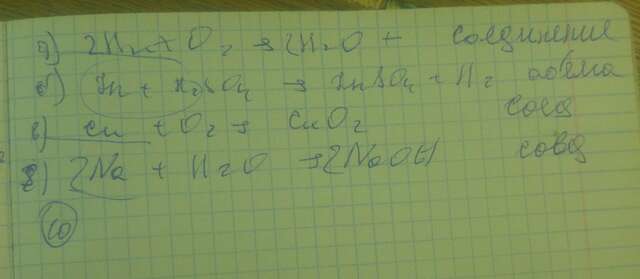 а) 2H₂ + O₂ → 2H₂O + соединение
б) Zn + H₂SO₄ → ZnSO₄ + H₂ обмена
в) Cu + O₂ → CuO₂ соед
г) 2Na + H₂O → 2NaOH соед
10